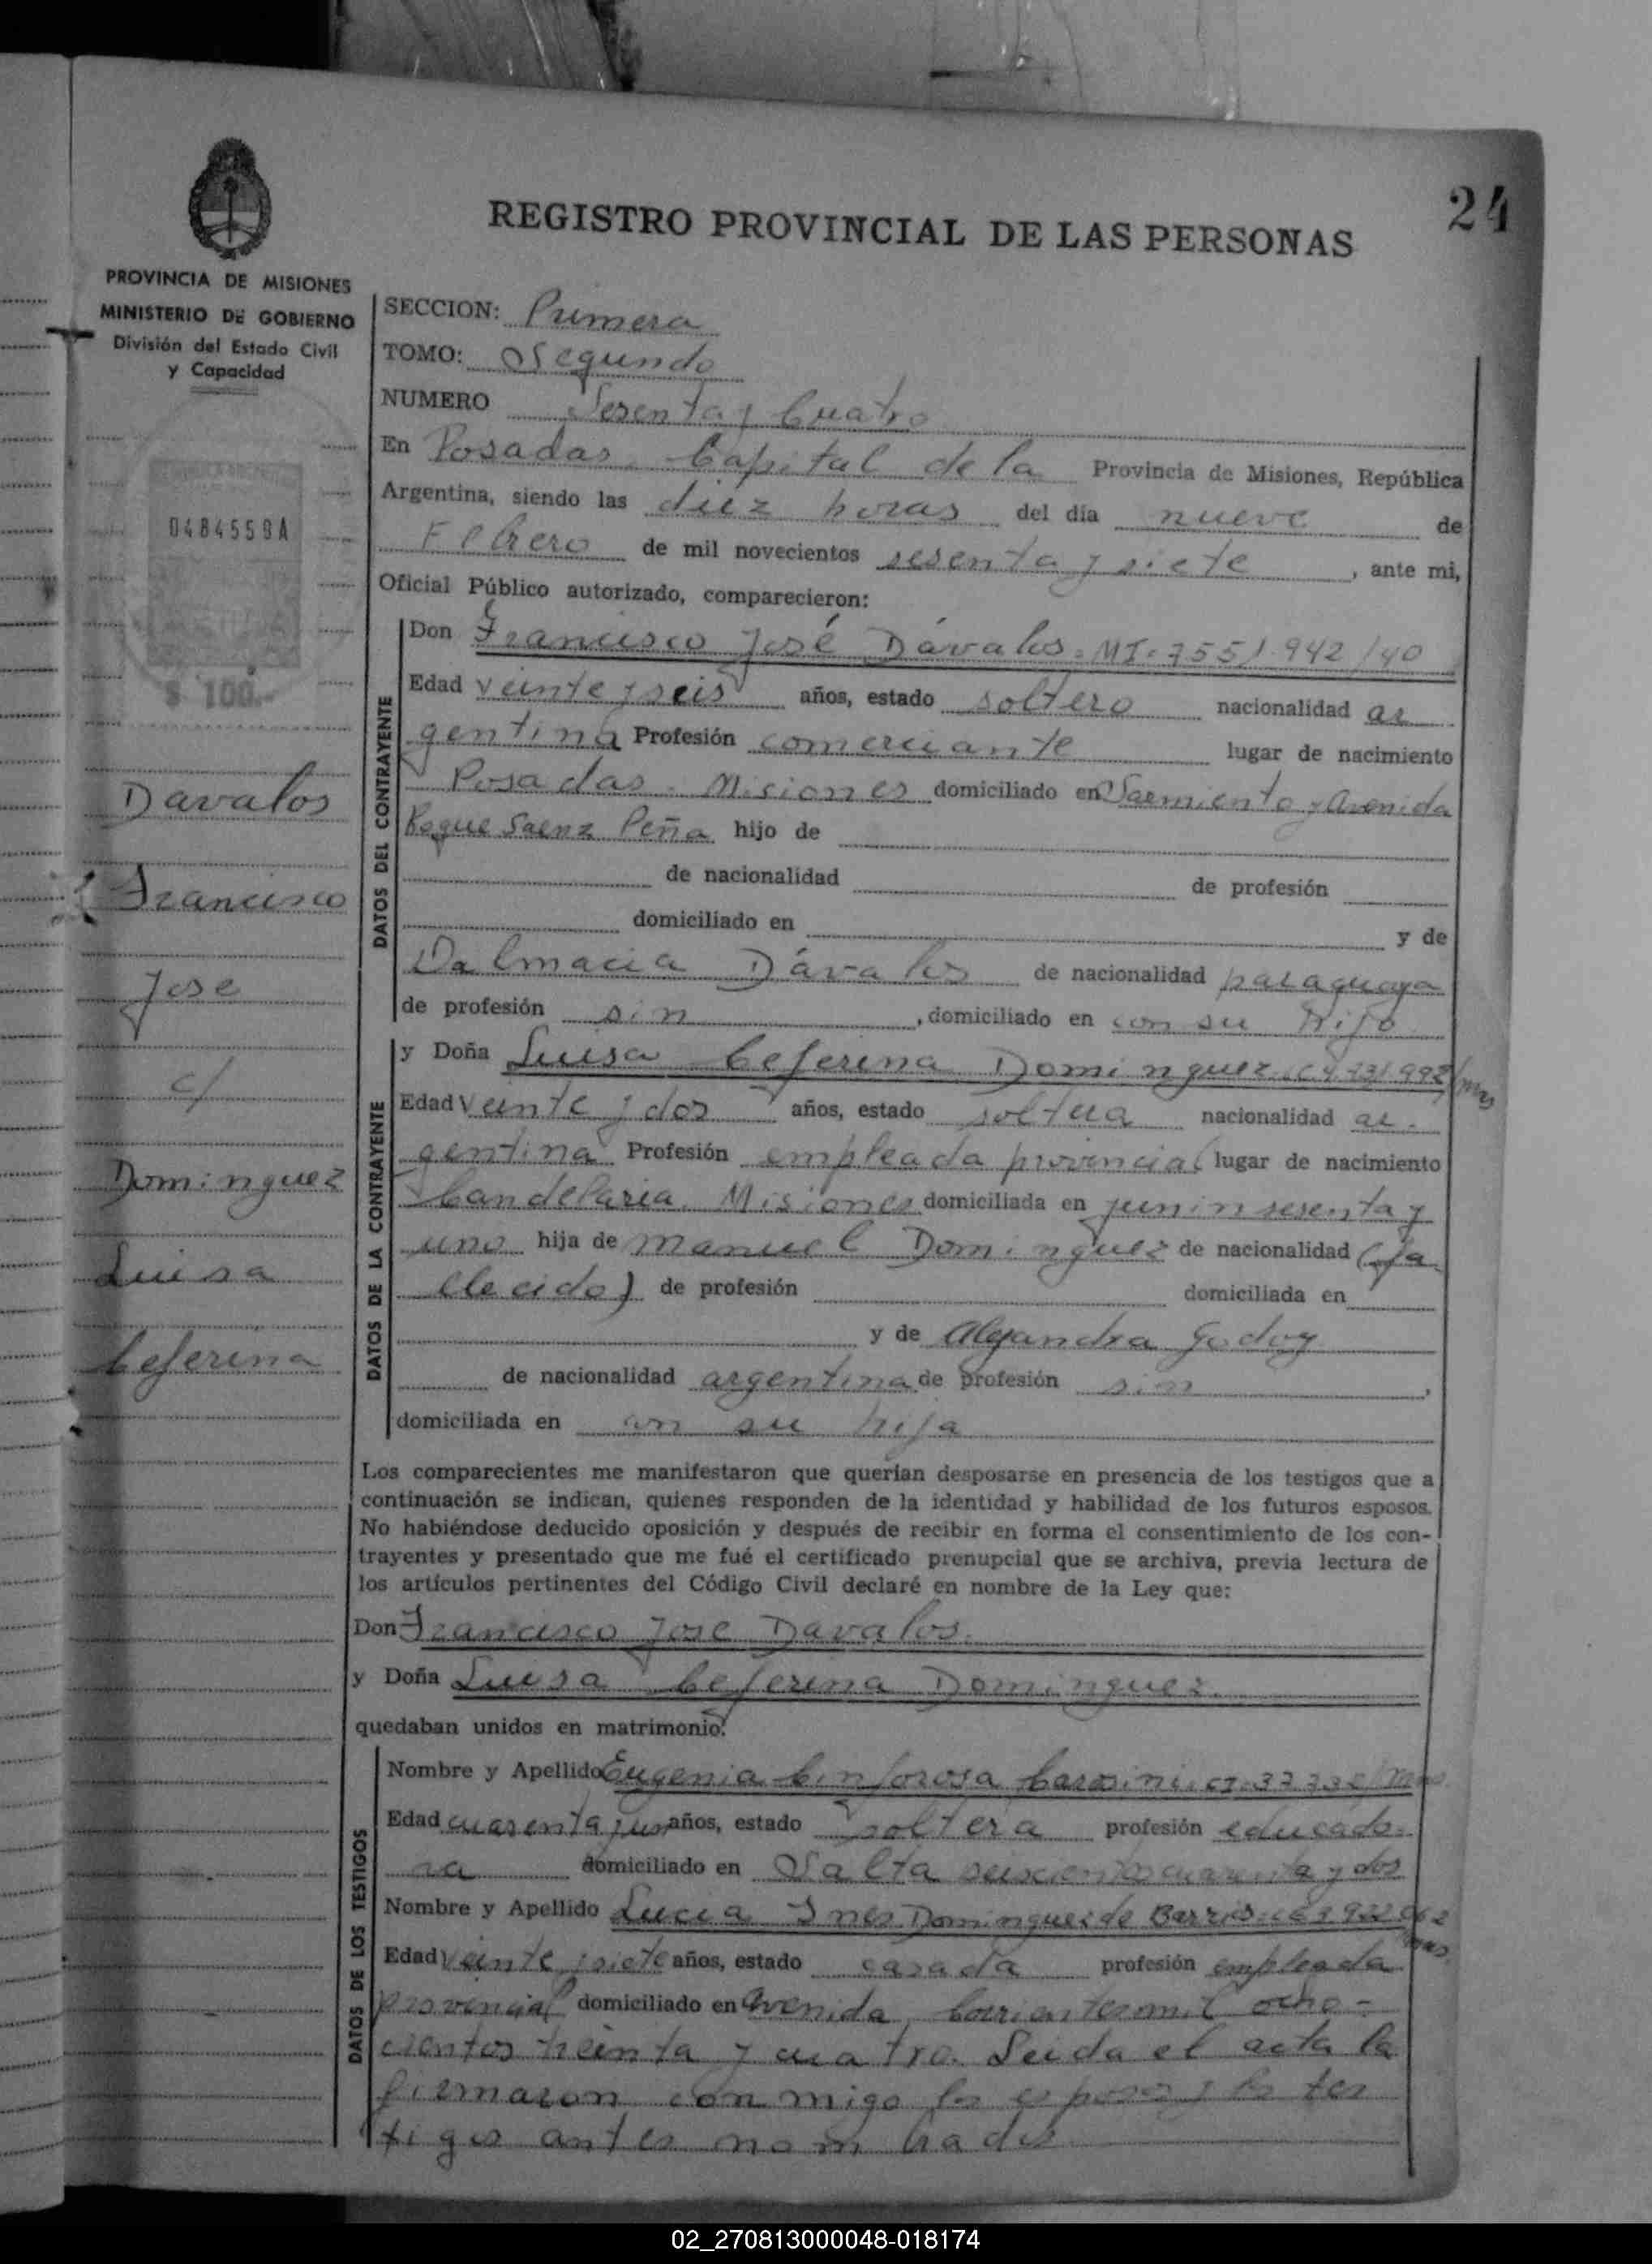 24
REGISTRO PROVINCIAL DE LAS PERSONAS
PROVINCIA DE MISIONES
MINISTERIO DE GOBIERNO
División del Estado Civil
y Capacidad
0484559A
$ 100.-
Davalos
Francisco
Jose
c/
Dominguez
Luisa
Ceferina
SECCION: Primera
TOMO: Segundo
NUMERO Sesenta y Cuatro
En Posadas, Capital de la Provincia de Misiones, República
Argentina, siendo las diez horas del día nueve de
Febrero de mil novecientos sesenta y siete, ante mi,
Oficial Público autorizado, comparecieron:
DATOS DEL CONTRAYENTE
Don Francisco José Dávalos = MI = 7551.942/40
Edad veinte y seis años, estado soltero nacionalidad ar
gentina Profesión comerciante lugar de nacimiento
Posadas. Misiones domiciliado en Sarmiento y Avenida
Roque Saenz Peña hijo de
de nacionalidad de profesión
domiciliado en y de
Dalmacia Dávalos de nacionalidad paraguaya
de profesión sin, domiciliado en con su hijo
DATOS DE LA CONTRAYENTE
y Doña Luisa Ceferina Dominguez
Edad veinte y dos años, estado soltera nacionalidad ar.
gentina Profesión empleada provincial lugar de nacimiento
Candelaria. Misiones domiciliada en junin sesenta y
uno hija de Manuel Dominguez de nacionalidad (fa
llecido) de profesión domiciliada en
y de Alejandra Godoy
de nacionalidad argentina de profesión sin,
domiciliada en con su hija
Los comparecientes me manifestaron que querían desposarse en presencia de los testigos que a
continuación se indican, quienes responden de la identidad y habilidad de los futuros esposos.
No habiéndose deducido oposición y después de recibir en forma el consentimiento de los con-
trayentes y presentado que me fué el certificado prenupcial que se archiva, previa lectura de
los artículos pertinentes del Código Civil declaré en nombre de la Ley que:
Don Francisco Jose Davalos.
y Doña Luisa Ceferina Dominguez.
quedaban unidos en matrimonio.
DATOS DE LOS TESTIGOS
Nombre y Apellido Eugenia Cinforosa
Edad cuarenta y un años, estado soltera profesión educado=
ra domiciliado en Salta seiscientos cuarenta y dos
Nombre y Apellido Lucia Ines Dominguez de Barrios
Edad veinte y siete años, estado casada profesión empleada
provincial domiciliado en Avenida Corrientes mil ocho-
cientos treinta y cuatro. Leida el acta la
firmaron conmigo los esposos y los tes
tigos antes nombrados
02_270813000048-018174